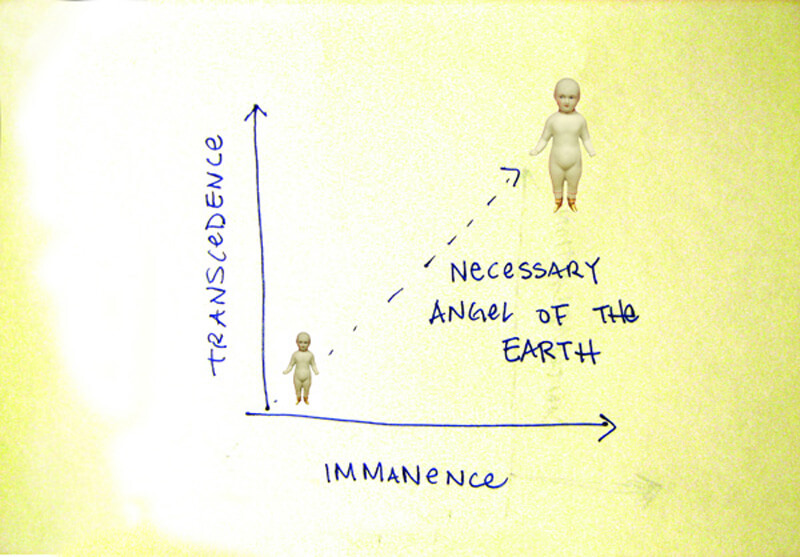 TRANSCEDENCE
NECESSARY
ANGEL OF THE
EARTH
IMMANENCE